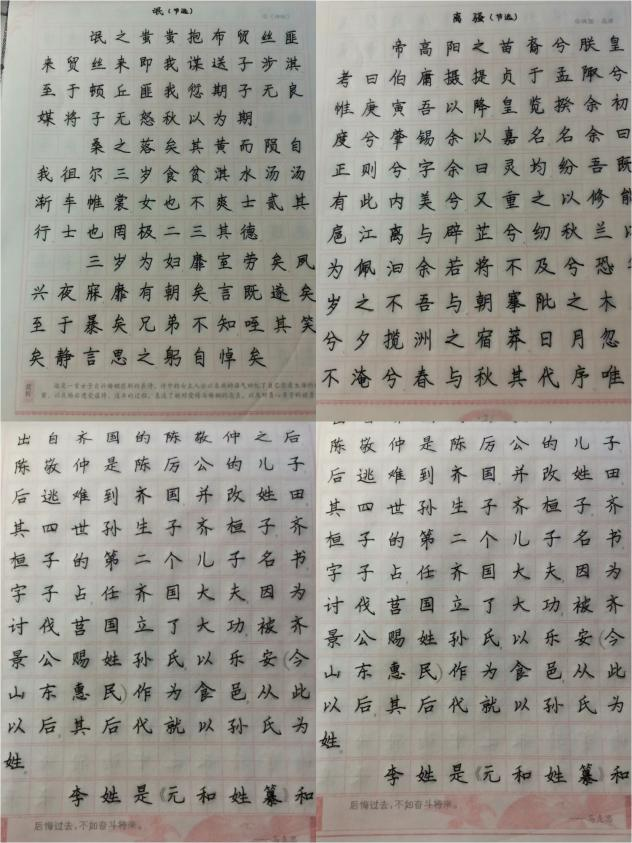 氓（节选）
氓之蚩蚩抱布贸丝匪
来贸丝来即我谋送子涉淇
至于顿丘匪我愆期子无良
媒将子无怒秋以为期
桑之落矣其黄而陨自
我徂尔三岁食贫淇水汤汤
渐车帷裳女也不爽士贰其
行士也罔极二三其德
三岁为妇靡室劳矣夙
兴夜寐靡有朝矣言既遂矣
至于暴矣兄弟不知咥其笑
矣静言思之躬自悼矣
赏析
离骚（节选）
帝高阳之苗裔兮朕皇
考曰伯庸摄提贞于孟陬兮
惟庚寅吾以降皇览揆余初
度兮肇锡余以嘉名名余曰
正则兮字余曰灵均纷吾既
有此内美兮又重之以修能
扈江离与辟芷兮纫秋兰以
为佩汩余若将不及兮恐年
岁之不吾与朝搴阰之木
兮夕揽洲之宿莽日月忽
不淹兮春与秋其代序唯
出自齐国的陈敬仲之后
陈敬仲是陈厉公的儿子
后逃难到齐国并改姓田
其四世孙生子齐桓子齐
桓子的第二个儿子名书
字子占任齐国大夫因为
讨伐莒国立了大功被齐
景公赐姓孙氏以乐安(今
山东惠民)作为食邑从此
以后其后代就以孙氏为
姓
李姓是《元和姓纂》和
后悔过去，不如奋斗将来。
——马克思
陈敬仲是陈厉公的儿子
后逃难到齐国并改姓田
其四世孙生子齐桓子齐
桓子的第二个儿子名书
字子占任齐国大夫因为
讨伐莒国立了大功被齐
景公赐姓孙氏以乐安(今
山东惠民)作为食邑从此
以后其后代就以孙氏为
姓
李姓是《元和姓纂》和
后悔过去，不如奋斗将来。
——马克思